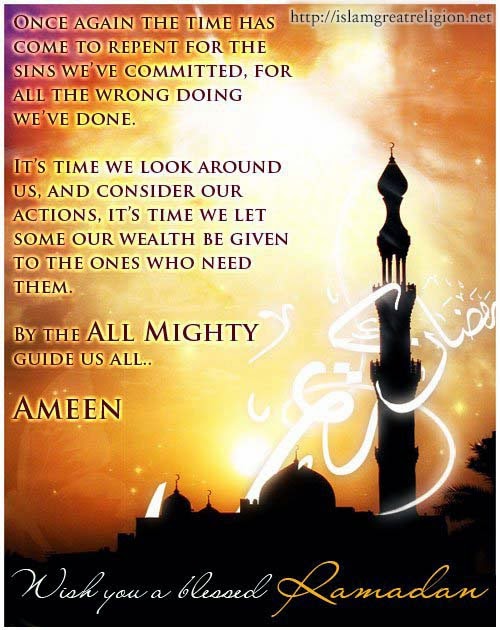 http://islamgreatreligion.net
Once again the time has
come to repent for the
sins we've committed, for
all the wrong doing
we've done.
It's time we look around
us, and consider our
actions, it's time we let
some our wealth be given
to the ones who need
them.
By the All Mighty
guide us all..
Ameen
رمضان كريم
Wish you a blessed Ramadan